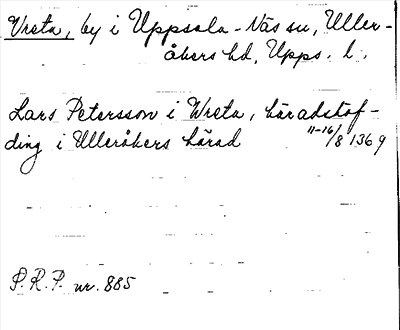 Vreta, by i Uppsala-Näs sn, Uller-
åkers hd, Upps. l.
Lars Petersson i Wreta, häradshöf-
ding i Ulleråkers härad 11-16/8 1369
S.R.P. nr. 885